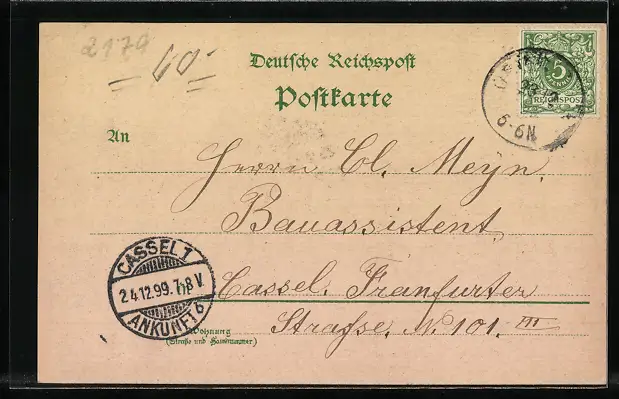 2179
60.-
Deutsche Reichspost
Postkarte
5
REICHSPOST
23 12
5-6N
An
Herrn Cl. Meyn,
Bauassistent
CASSEL 1
24.12.99. 7-8 V.
ANKUNFT 6
Cassel. Franfurter
Straße. N. 101. III
Wohnung
(Straße und Hausnummer)